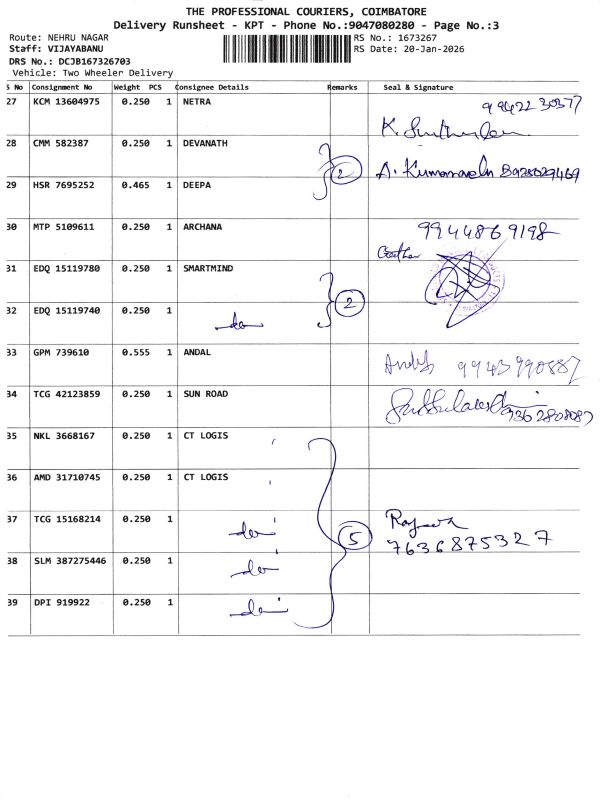 THE PROFESSIONAL COURIERS, COIMBATORE
Delivery Runsheet - KPT - Phone No.:9047080280 - Page No.:3
Route: NEHRU NAGAR
RS No.: 1673267
Staff: VIJAYABANU
RS Date: 20-Jan-2026
DRS No.: DCJB167326703
Vehicle: Two Wheeler Delivery
S No Consignment No Weight PCS Consignee Details Remarks Seal & Signature
27 KCM 13604975 0.250 1 NETRA
K.
28 CMM 582387 0.250 1 DEVANATH
2 A. Kumaravelu
29 HSR 7695252 0.465 1 DEEPA
30 MTP 5109611 0.250 1 ARCHANA 9944869198
31 EDQ 15119780 0.250 1 SMARTMIND
2
32 EDQ 15119740 0.250 1 do
33 GPM 739610 0.555 1 ANDAL 9943990887
34 TCG 42123859 0.250 1 SUN ROAD
35 NKL 3668167 0.250 1 CT LOGIS
36 AMD 31710745 0.250 1 CT LOGIS
37 TCG 15168214 0.250 1 do
5 7636875327
38 SLM 387275446 0.250 1 do
39 DPI 919922 0.250 1 do